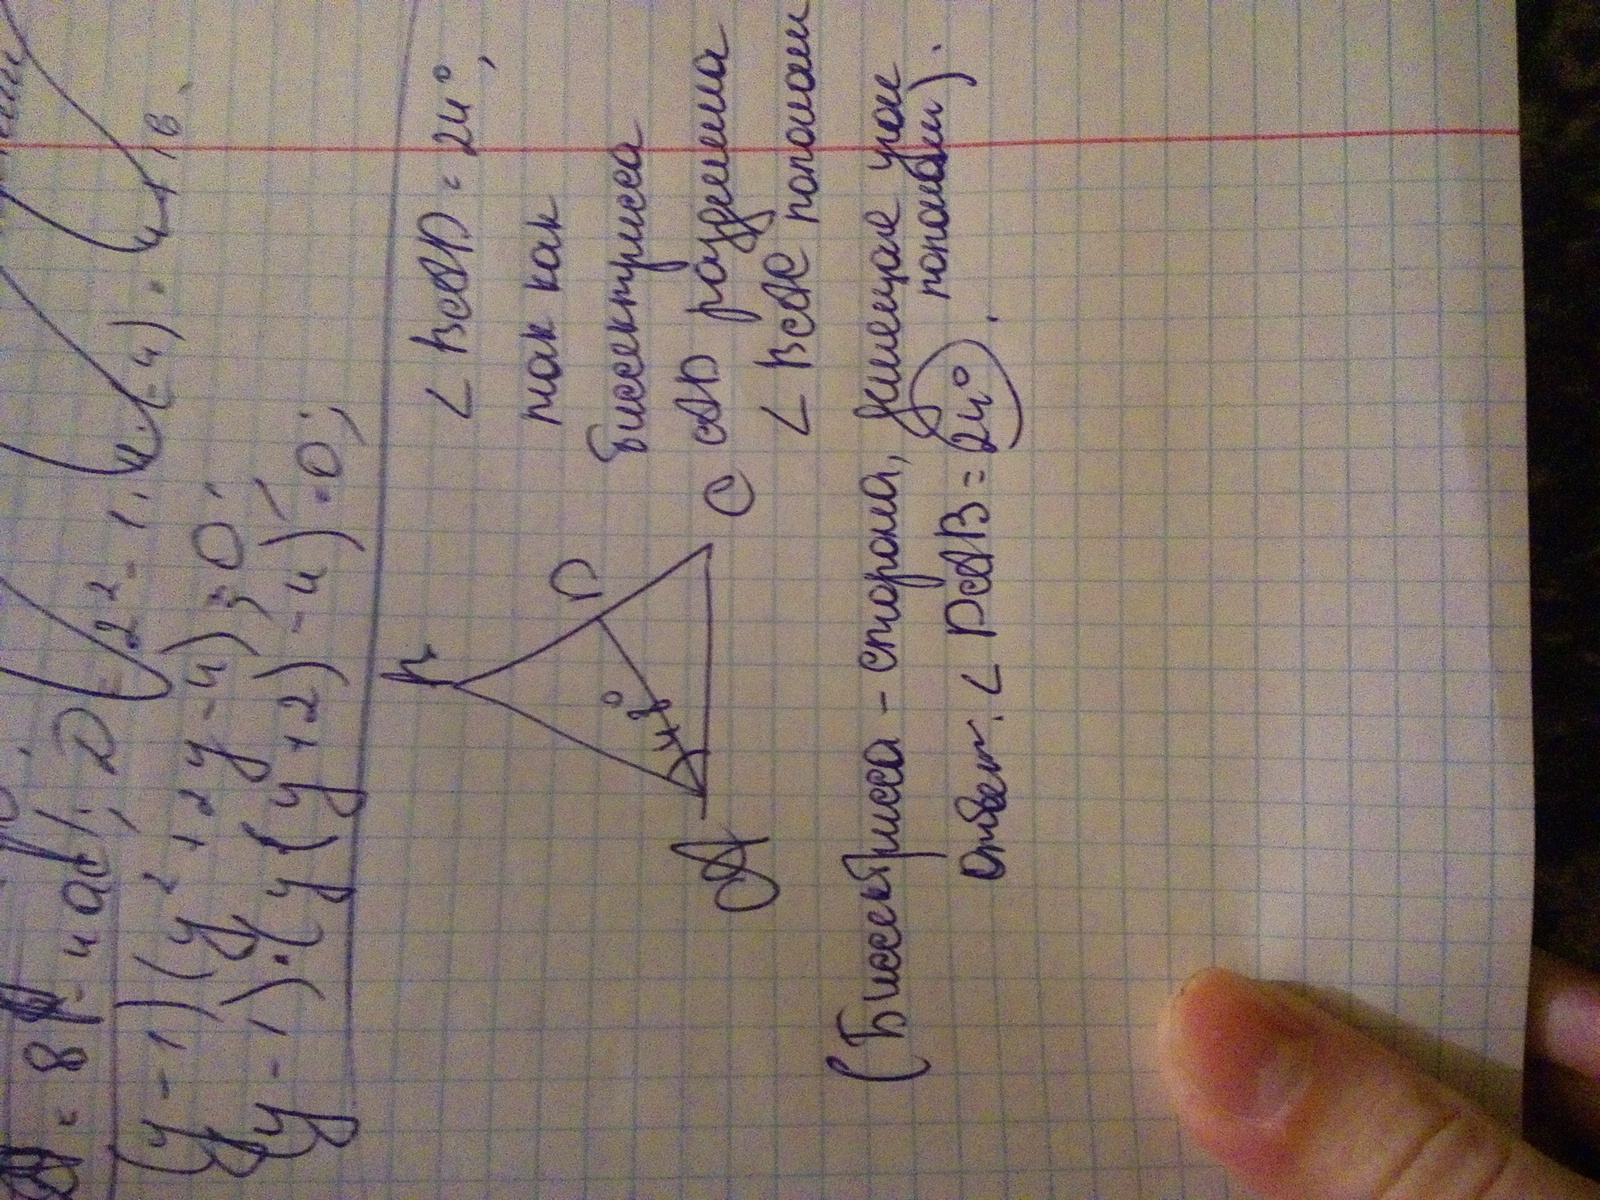 (y-1)(y²+2y-4)=0;
(y-1)·(y(y+2)-4)=0;
B
D
48°
A
C
∠BAD=24°,
так как
биссектриса
AD разделила
∠BAC пополам
(Биссектриса - сторона, делящая угол
пополам).
Ответ: ∠DAB=24°.